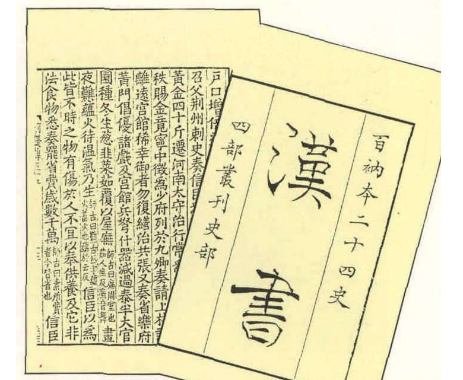 百衲本二十四史
漢書
四部叢刊史部
戶口增倍
召父荆州刺史奏信臣
黃金四十斤遷河南太守治行常爲
秩賜金竟寧中徵爲少府列於九卿奏請上林
離遠宮館稀幸御者勿復繕治共張又奏省樂府
黃門倡優諸戲及宮館兵弩什器減過泰半太官
園種冬生葱韭菜茹覆以屋廡 晝
夜㸐蘊火待溫氣乃生 信臣以爲
此皆不時之物有傷於人不宜以奉供養及它非
法食物悉奏罷省費歲數千萬 信臣